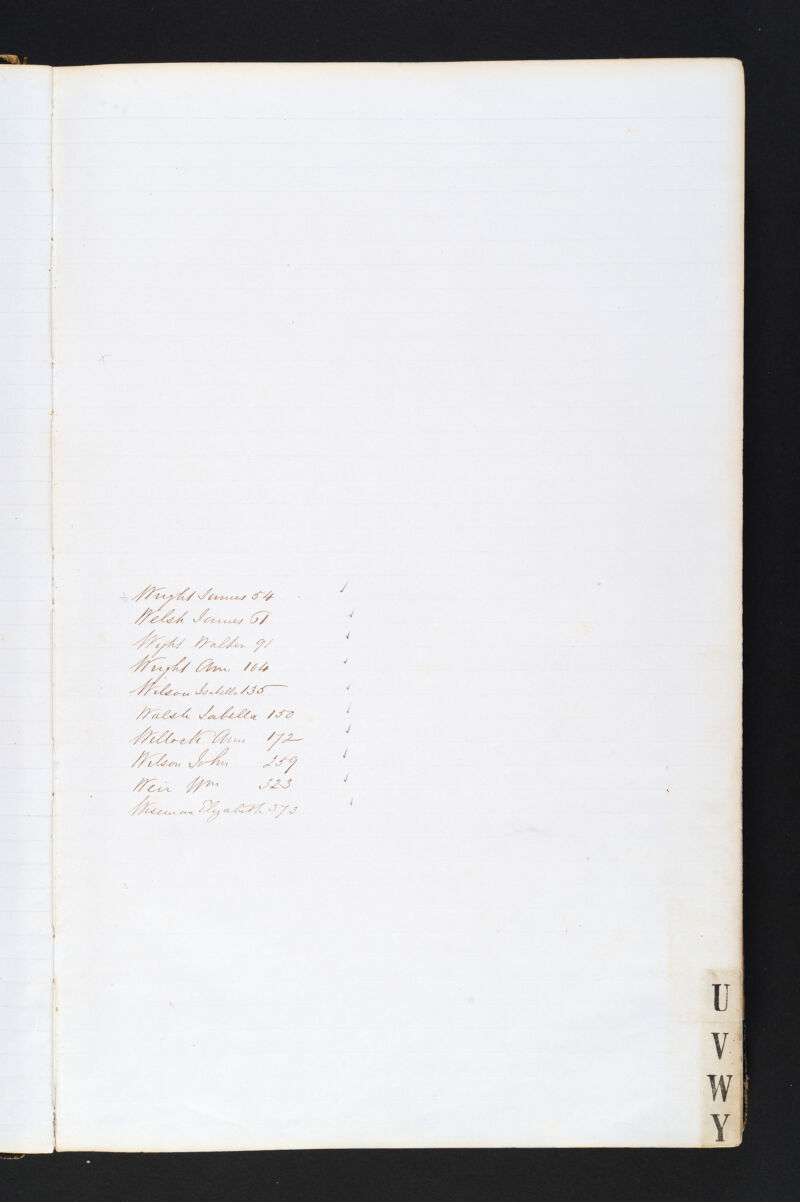 Wright James 54
Welsh James 61
Wight Walter 91
Wright Ann 104
Wilson Isabella 135
Walsh Isabella 150
Willock Ann 172
Wilson John 259
Weir Wm 323
Wiseman Elizabeth 373
U
V
W
Y